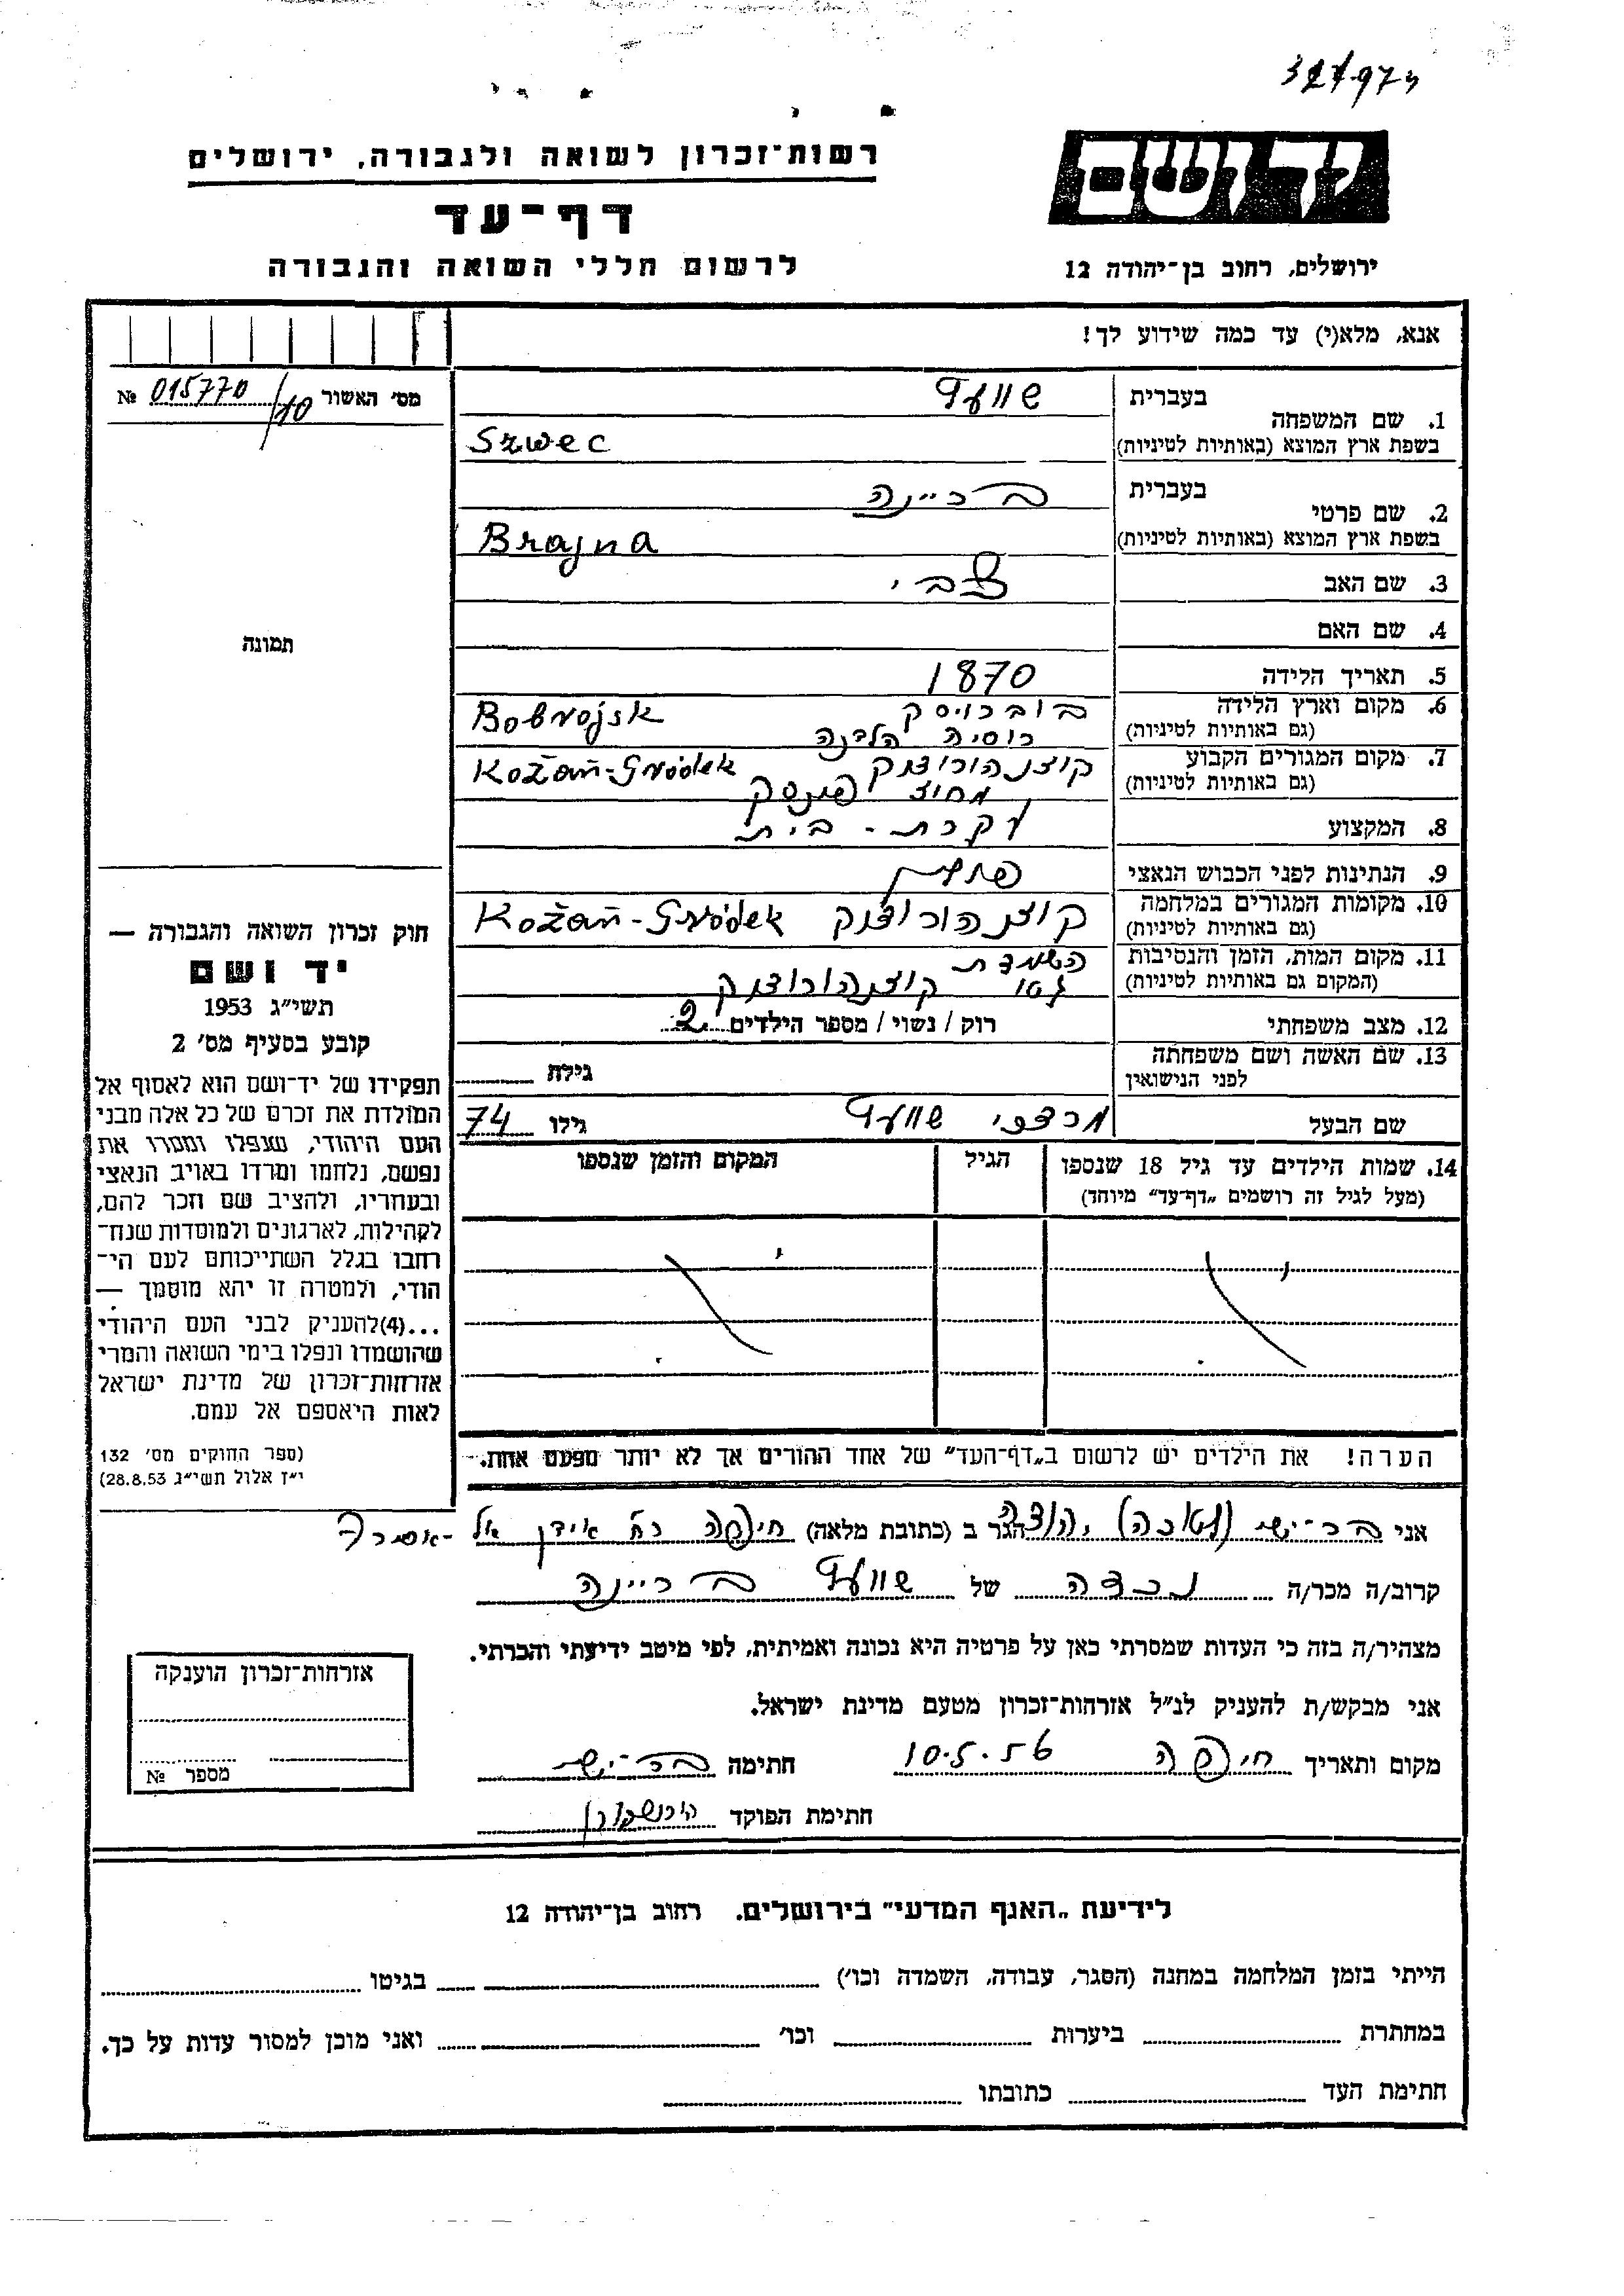 327973
רשות־זכרון לשואה ולגבורה, ירושלים
יד ושם
דף־עד
לרשום חללי השואה והגבורה
ירושלים, רחוב בן־יהודה 12
אנא, מלא(י) עד כמה שידוע לך!
מס׳ האשור 015770/10 №
1. שם המשפחה
בעברית שוועץ
בשפת ארץ המוצא (באותיות לטיניות) Szwec
2. שם פרטי
בעברית בריינה
בשפת ארץ המוצא (באותיות לטיניות) Brajna
3. שם האב צבי
4. שם האם
5. תאריך הלידה 1870
6. מקום וארץ הלידה בוברויסק Bobrojsk
(גם באותיות לטיניות) רוסיה הלבנה
7. מקום המגורים הקבוע קוצנהורודוק Kožań-Gródek
(גם באותיות לטיניות) מחוז פינסק
8. המקצוע עקרת-בית
9. הנתינות לפני הכבוש הנאצי פולין
10. מקומות המגורים במלחמה קוצנהורודוק Kožań-Gródek
(גם באותיות לטיניות)
11. מקום המות, הזמן והנסיבות השמדת
(המקום גם באותיות לטיניות) גטו קוצנהורודוק
12. מצב משפחתי רוק / נשוי / מספר הילדים 2
13. שם האשה ושם משפחתה
לפני הנישואין גילה
שם הבעל מרדכי שוועץ גילו 74
14. שמות הילדים עד גיל 18 שנספו הגיל המקום והזמן שנספו
(מעל לגיל זה רושמים „דף־עד״ מיוחד)
הערה! את הילדים יש לרשום ב„דף־העד״ של אחד ההורים אך לא יותר מפעם אחת.
תמונה
חוק זכרון השואה והגבורה —
יד ושם
תשי״ג 1953
קובע בסעיף מס׳ 2
תפקידו של יד־ושם הוא לאסוף אל
המולדת את זכרם של כל אלה מבני
העם היהודי, שנפלו ומסרו את
נפשם, נלחמו ומרדו באויב הנאצי
ובעוזריו, ולהציב שם וזכר להם,
לקהילות, לארגונים ולמוסדות שנח־
רבו בגלל השתייכותם לעם הי־
הודי, ולמטרה זו יהא מוסמך —
...(4)להעניק לבני העם היהודי
שהושמדו ונפלו בימי השואה והמרי
אזרחות־זכרון של מדינת ישראל
לאות היאספם אל עמם.
(ספר החוקים מס׳ 132
י״ז אלול תשי״ג 28.8.53)
אני בר-ישי יהודה הגר ב (כתובת מלאה) חיפה רח׳
קרוב/ה מכר/ה נכדה של שוועץ בריינה
מצהיר/ה בזה כי העדות שמסרתי כאן על פרטיה היא נכונה ואמיתית, לפי מיטב ידיעתי והכרתי.
אני מבקש/ת להעניק לנ״ל אזרחות־זכרון מטעם מדינת ישראל.
מקום ותאריך חיפה 10.5.56 חתימה בר-ישי
חתימת הפוקד
אזרחות־זכרון הוענקה
מספר №
לידיעת „האגף המדעי״ בירושלים. רחוב בן־יהודה 12
הייתי בזמן המלחמה במחנה (הסגר, עבודה, השמדה וכו׳) בגיטו
במחתרת ביערות וכו׳ ואני מוכן למסור עדות על כך.
חתימת העד כתובתו